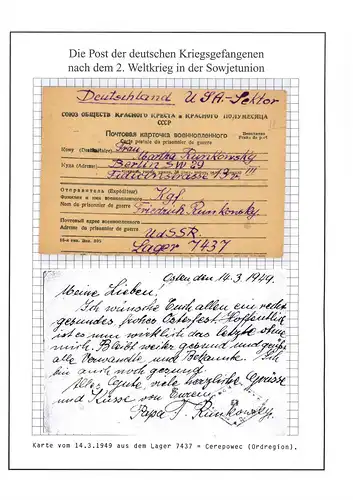 Die Post der deutschen Kriegsgefangenen
nach dem 2. Weltkrieg in der Sowjetunion
Deutschland USA.-Sektor
СОЮЗ ОБЩЕСТВ КРАСНОГО КРЕСТА и КРАСНОГО ПОЛУМЕСЯЦА
СССР
Почтовая карточка военнопленного
Carte postale du prisonnier de guerre
Кому (Destinataire) Frau
Runkowsky
Куда (Adresse) Berlin SW 29
Отправитель (Expéditeur) Kgf.
Фамилия и имя военнопленного
Nom du prisonnier de guerre Friedrich Runkowsky.
Почтовый адрес военнопленного
Adresse du prisonnier de guerre UdSSR.
Lager 7437
14.3.1949.
Meine Lieben!
Ich wünsche Euch allen ein recht
gesundes frohes Osterfest. Hoffentlich
ist es nun wirklich das letzte ohne
mich. Bleibt weiter gesund und grüßt
alle Verwandte und Bekannte. Ich
bin auch noch gesund.
Alles Gute, viele herzliche Grüsse
und Küsse von Eurem
Papa F. Runkowsky.
Karte vom 14.3.1949 aus dem Lager 7437 = Cerepowec (Ordregion).